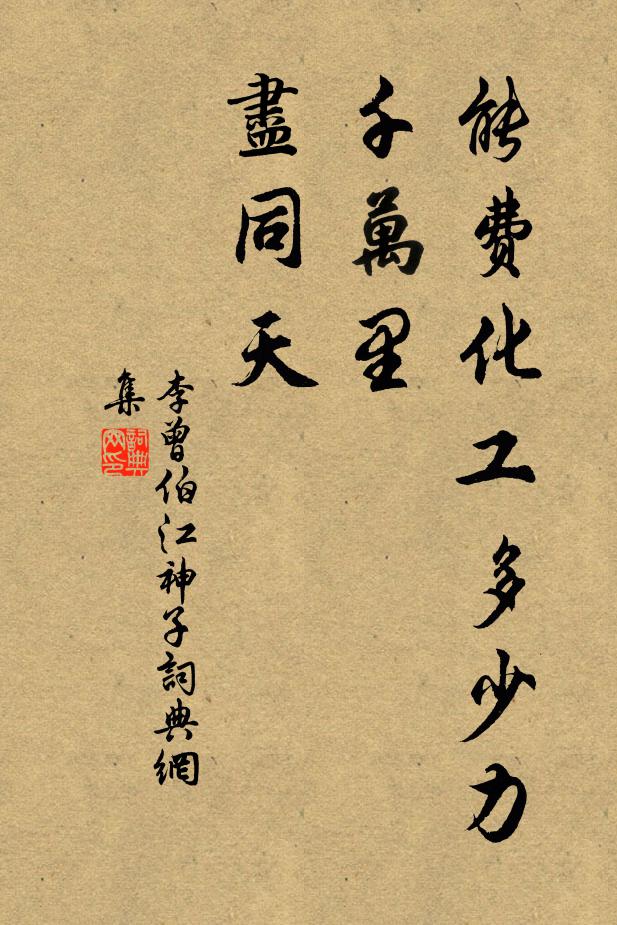 能費化工多少力
千萬里
盡同天
李曾伯江神子詞典網
集
詞典
网印